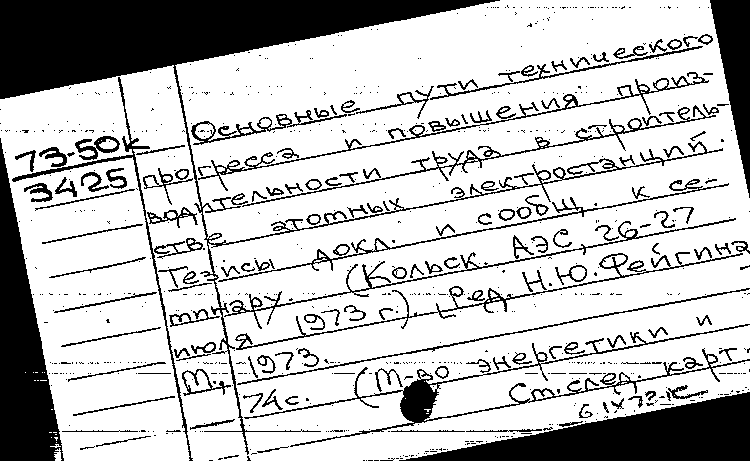 73-50к
3425
Основные пути технического
прогресса и повышения произ-
водительности труда в строитель-
стве атомных электростанций.
Тезисы докл. и сообщ. к се-
минару. (Кольск. АЭС, 26-27
июля 1973 г.). [Ред. Н.Ю.Фейгина
М., 1973.
74с. (М-во энергетики и
Ст. след. карт.